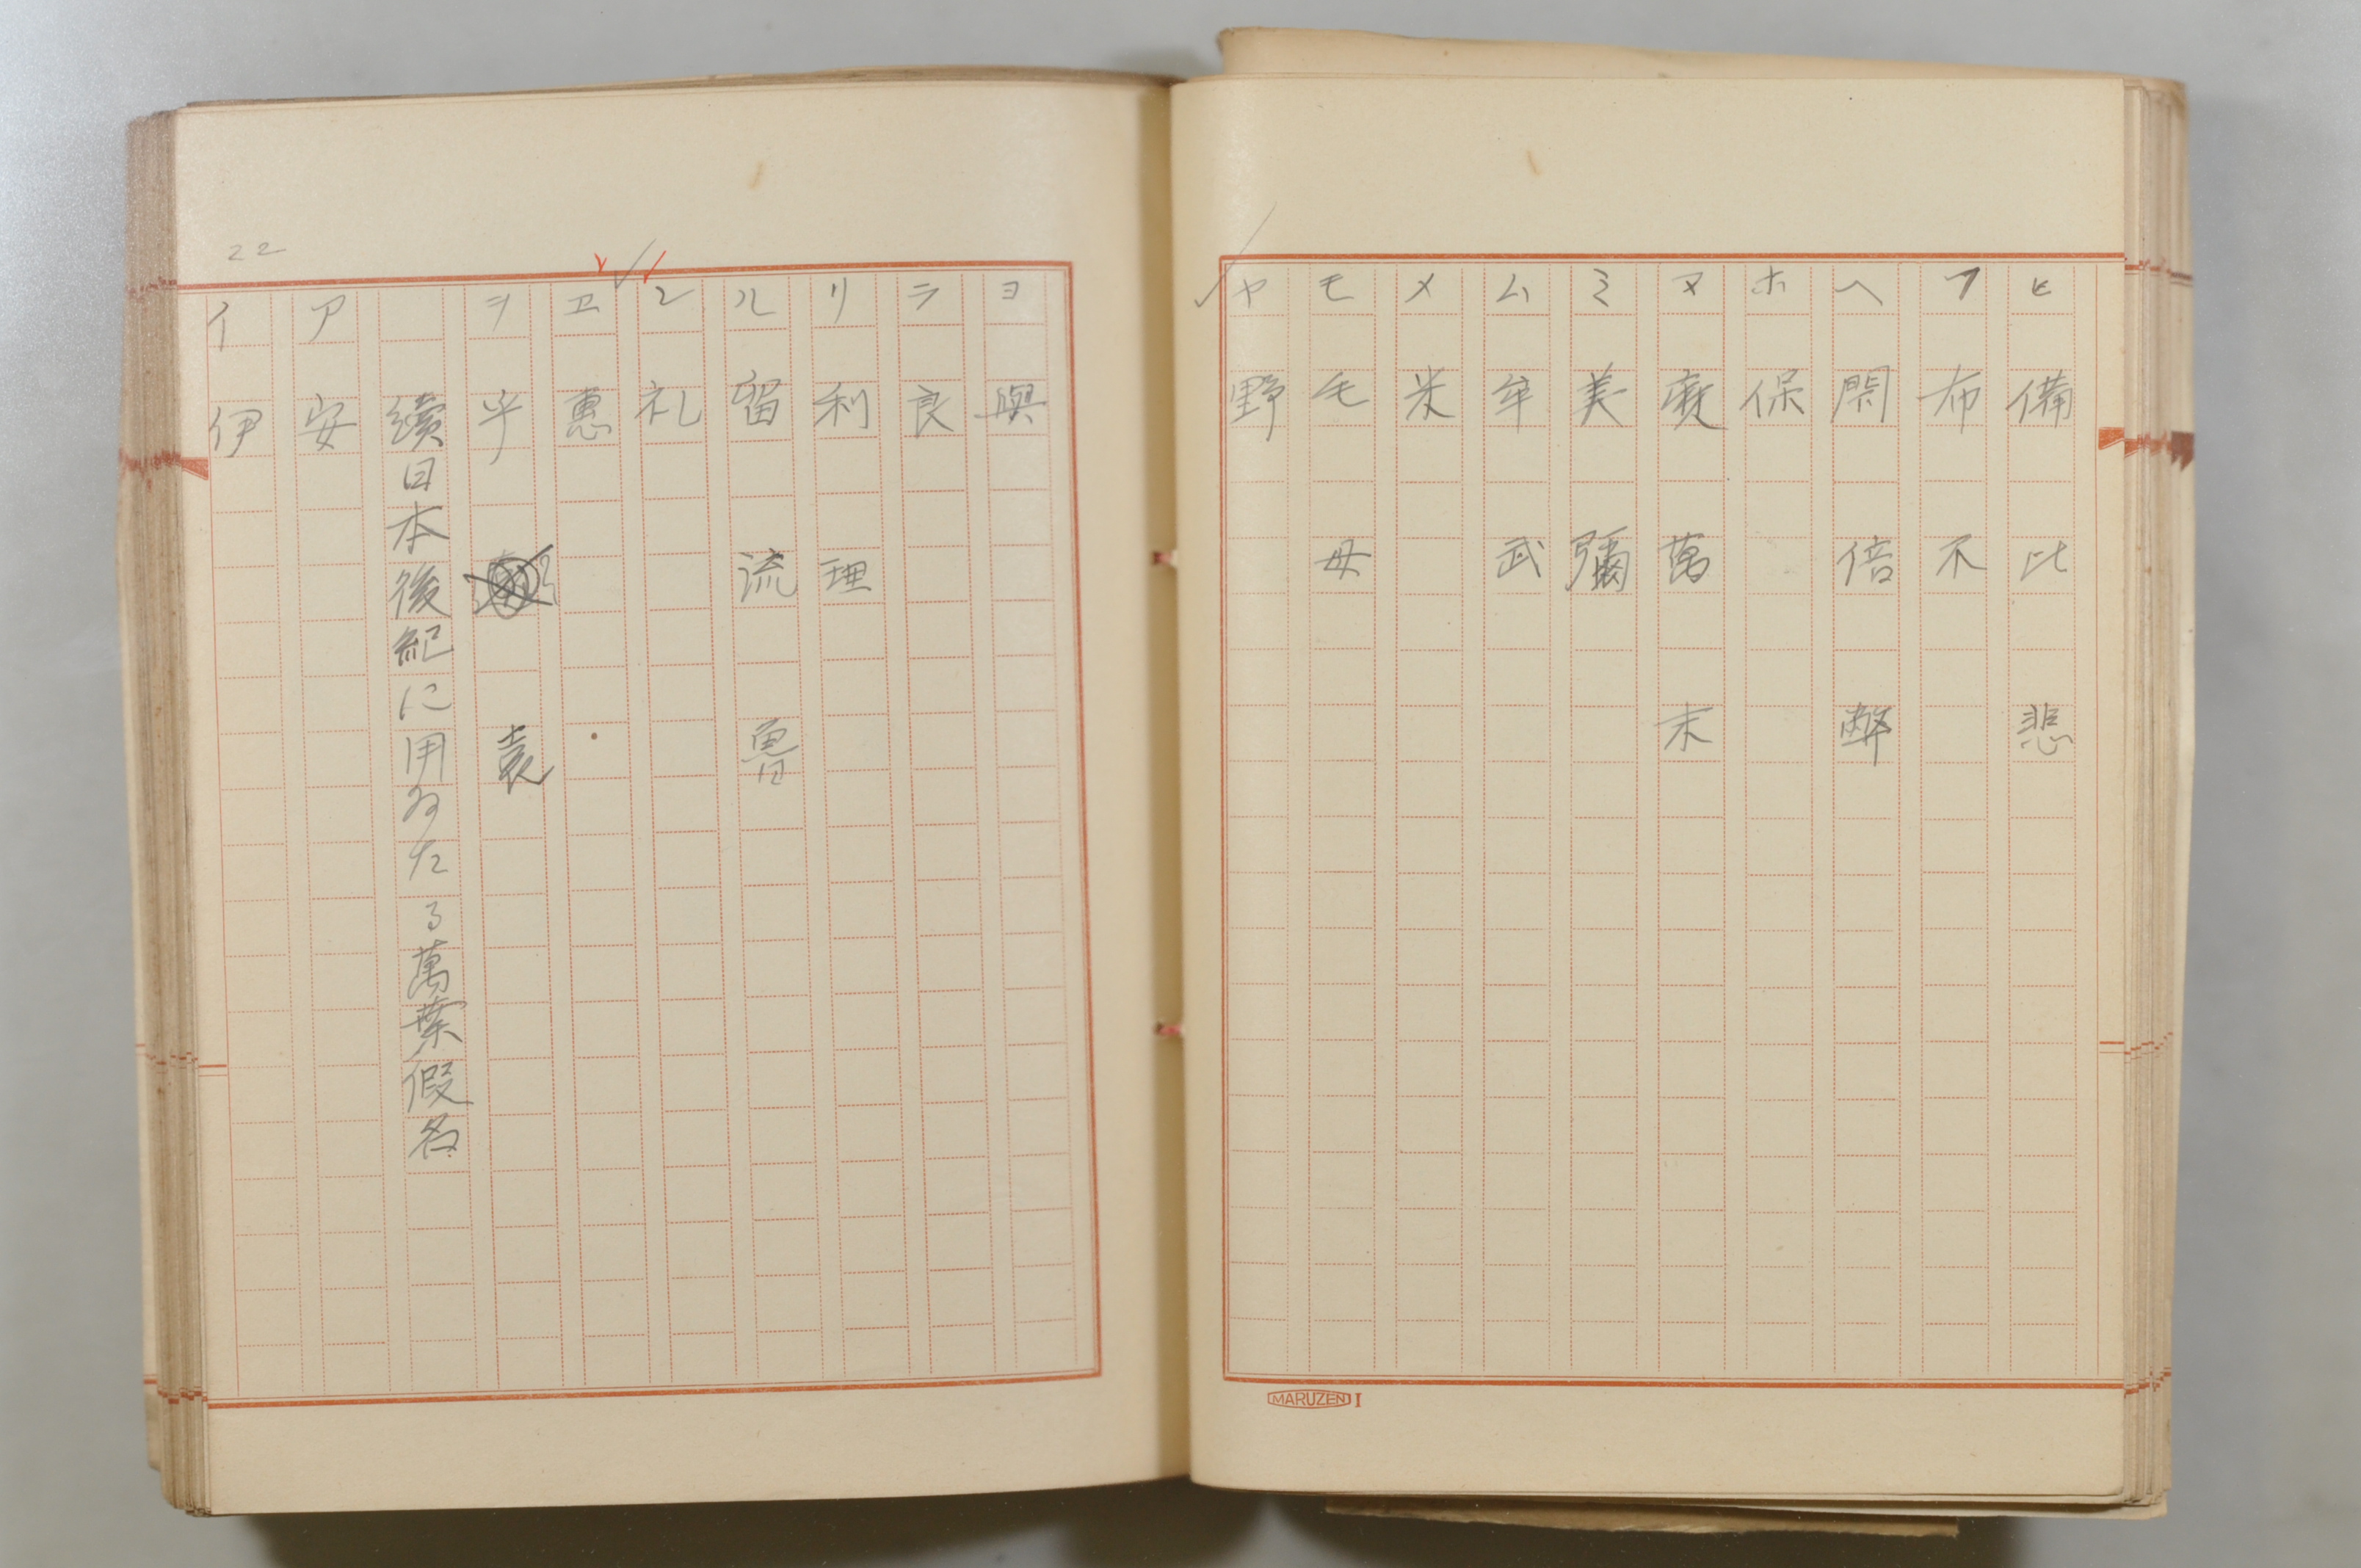 ヒ 備 比 悲
フ 布 不
ヘ 閇 倍 弊
ホ 保
マ 麽 萬 末
ミ 美 彌
ム 牟 武
メ 米
モ 毛 母
ヤ 野
MARUZEN I
ヨ 與
ラ 良
リ 利 理
ル 留 流 魯
レ 礼
ヱ 惠
ヲ 乎 袁
續日本後紀に用ゐたる萬葉假名
ア 安
イ 伊
22